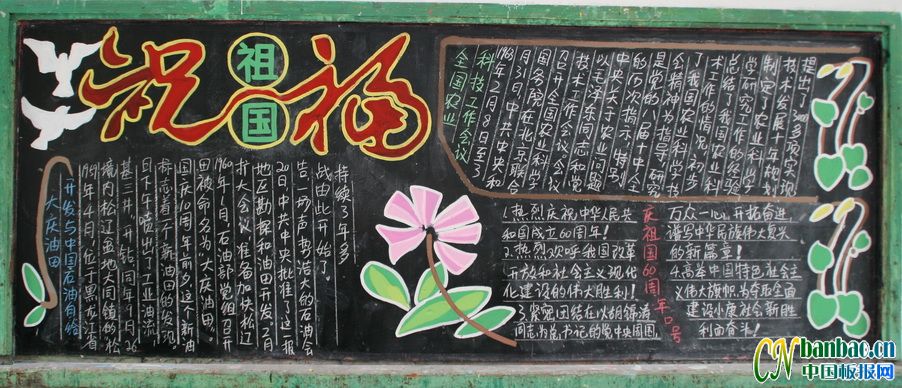 祝祖国福
开发与中国石油有缘
大庆油田
1959年4月,位于黑龙江省
境内松辽盆地大同镇的松
基三井,开钻同年9月26
日下午喷出了工业油流,
标志着一个新油田的发现。
国庆10周年前夕,这个新油
田被命名为“大庆油田”。
1960年1月石油部党组召开
扩大会议,准备加快松辽
地区勘探和油田开发,2月
20日,中共中央批准了这一报
告,一场声势浩大的石油会
战由此开始了。
持续3年多
全国农业
科技工作会议
1963年2月8日至3
月31日,中共中央和
国务院在北京联合
召开全国农业科学
技术工作会议,会议
以毛泽东同志和党
中央关于农业问题
的历次指示,特别
是党的八届十中全
会精神为指导,研究
了我国农业科学技
术工作情况,初步
总结了我国农业科
学研究工作的经验
制定了农业科学
技术发展十年规划
提出了3000多项实现
庆祖国60周年口号
1.热烈庆祝中华人民共
和国成立60周年!
2.热烈欢呼我国改革
开放和社会主义现代
化建设的伟大胜利!
3.紧密团结在以胡锦涛
同志为总书记的党中央周围,
万众一心,开拓奋进
谱写中华民族伟大复兴
的新篇章!
4.高举中国特色社会主
义伟大旗帜,为夺取全面
建设小康社会新胜
利而奋斗!
CN banbao.cn
中国板报网